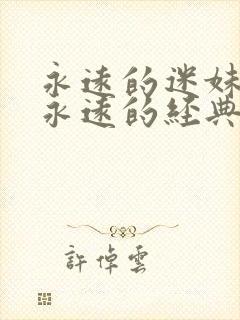 永遠的迷妹
永遠的經典
許倬雲